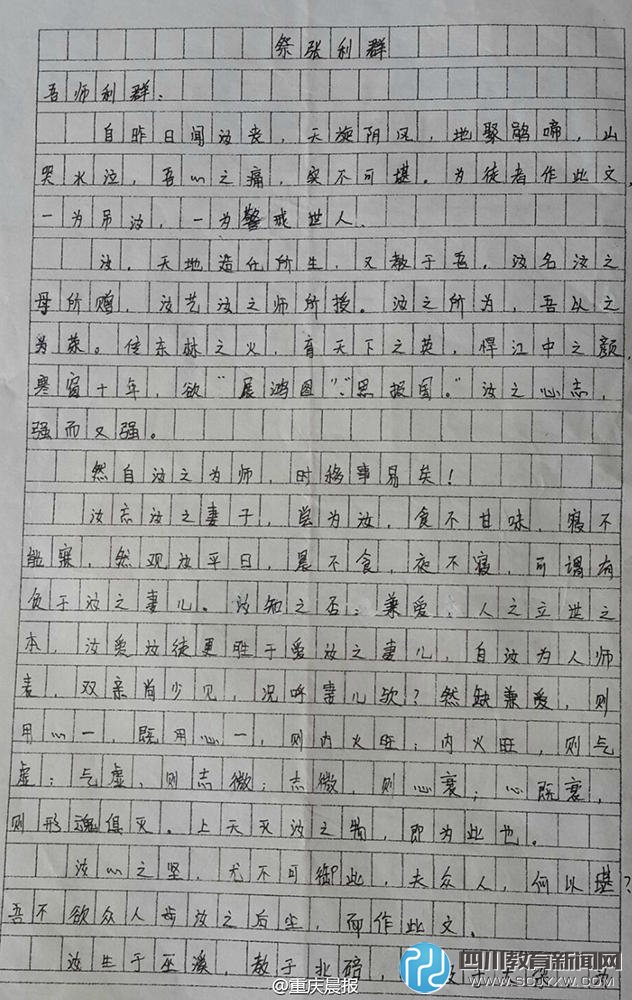 祭张利群
吾师利群：
自昨日闻汝丧，天旋阴风，地聚鹃啼，山
哭水泣，吾心之痛，实不可堪。为徒者作此文，
一为吊汝，一为警戒世人。
汝，天地造化所生，又教于吾，汝名汝之
母所赠，汝艺汝之师所授。汝之所为，吾以之
为荣。传东林之火，育天下之英，悍江中之颜，
寒窗十年，欲“展鸿图”、“思报国。”汝之心志，
强而又强。
然自汝之为师，时移事易矣！
汝亦汝之妻子，尝为汝，食不甘味，寝不
能寐，然观汝平日，晨不食，夜不寝，可谓有
负于汝之妻儿。汝知之否：兼爱，人之立世之
本，汝爱汝徒更胜于爱汝之妻儿，自汝为人师
表，双亲尚少见，况呼妻儿欤？然缺兼爱，则
用心一，既用心一，则内火旺；内火旺，则气
虚；气虚，则志微；志微，则心衰；心既衰，
则形魂俱灭。上天灭汝之躯，即为此也。
汝心之坚，尤不可御此，夫众人，何以堪？
吾不欲众人步汝之后尘，而作此文。
汝生于巫溪，教于北碚，
四川教育新闻网
WWW.SCJYXW.COM
@重庆晨报